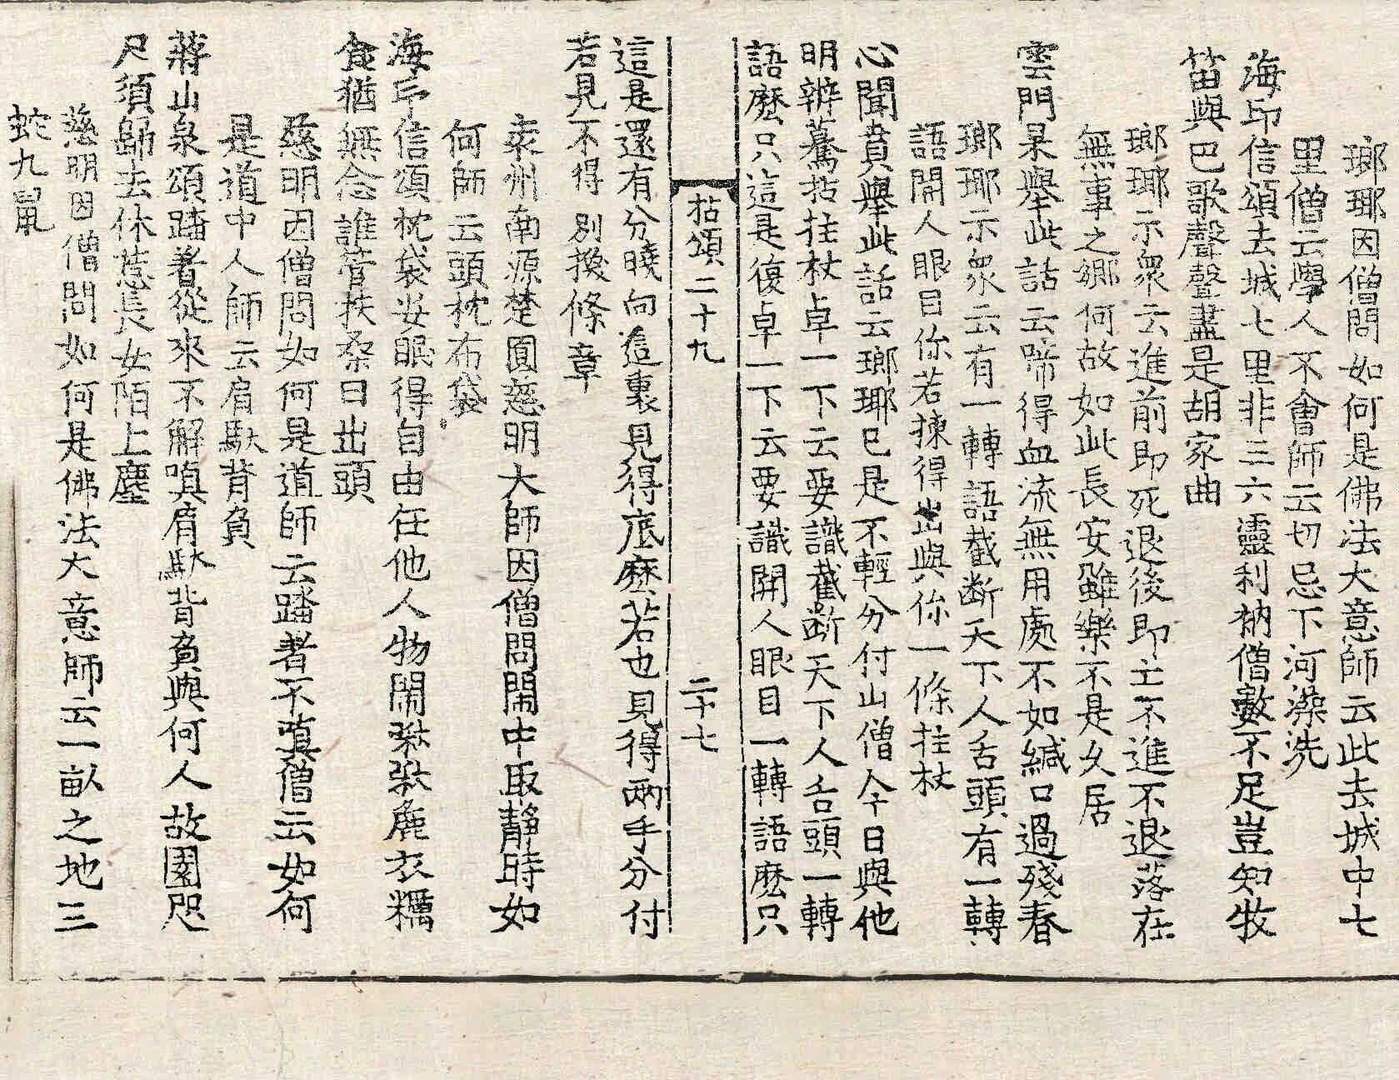 瑯瑘因僧問如何是佛法大意師云此去城中七
里僧云學人不會師云切忌下河澡洗
海印信頌去城七里非三六靈利衲僧數不足豈知牧
笛與巴歌聲聲盡是胡家曲
瑯瑘示衆云進前即死退後即亡不進不退落在
無事之鄕何故如此長安雖樂不是久居
雲門杲擧此話云啼得血流無用處不如緘口過殘春
瑯瑘示衆云有一轉語截斷天下人舌頭有一轉
語開人眼目你若揀得出與你一條拄杖
心聞賁擧此話云瑯瑘已是不輕分付山僧今日與他
明辨驀拈拄杖卓一下云要識截斷天下人舌頭一轉
語麽只這是復卓一下云要識開人眼目一轉語麽只
拈頌二十九 二十七
這是還有分曉向這裏見得底麽若也見得兩手分付
若見不得別換條章
袁州南源楚圓慈明大師因僧問鬧中取靜時如
何師云頭枕布袋
海印信頌枕袋安眠得自由任他人物鬧啾啾麁衣糲
食猶無念誰管扶桑日出頭
慈明因僧問如何是道師云踏著不嗔僧云如何
是道中人師云肩䭾背負
蔣山泉頌踏著從來不解嗔肩䭾背負與何人故園咫
尺須歸去休惹長安陌上塵
慈明因僧問如何是佛法大意師云一畝之地三
蛇九鼠